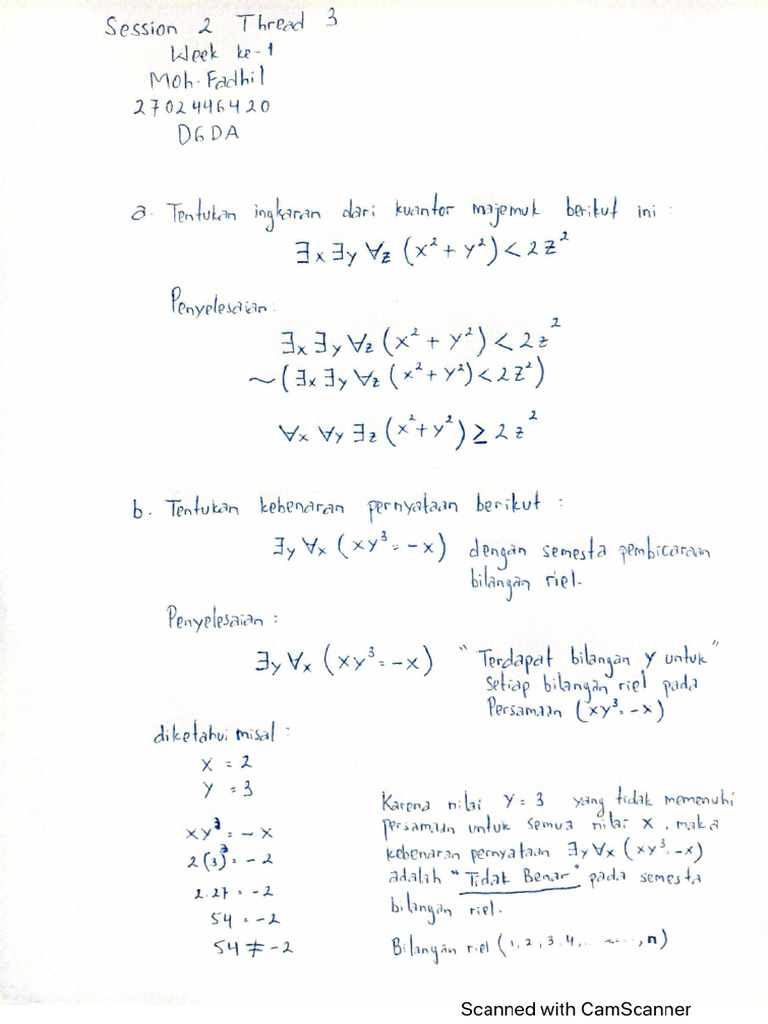 Session 2 Thread 3
Week ke-1
Moh. Fadhil
2702446420
DGDA
a. Tentukan ingkaran dari kuantor majemuk berikut ini :
∃x ∃y ∀z (x² + y²) < 2z²
Penyelesaian:
∃x ∃y ∀z (x² + y²) < 2z²
~(∃x ∃y ∀z (x² + y²) < 2z²)
∀x ∀y ∃z (x² + y²) ≥ 2z²
b. Tentukan kebenaran pernyataan berikut :
∃y ∀x (xy³ = -x) dengan semesta pembicaraan
bilangan riel.
Penyelesaian :
∃y ∀x (xy³ = -x) "Terdapat bilangan y untuk"
setiap bilangan riel pada
Persamaan (xy³ = -x)
diketahui misal :
x = 2
y = 3
xy³ = -x
2(3)³ = -2
2.27 = -2
54 = -2
54 ≠ -2
Karena nilai y = 3 yang tidak memenuhi
persamaan untuk semua nilai x, maka
kebenaran pernyataan ∃y ∀x (xy³ = -x)
adalah "Tidak Benar" pada semesta
bilangan riel.
Bilangan riel (1, 2, 3, 4, ........, n)
Scanned with CamScanner